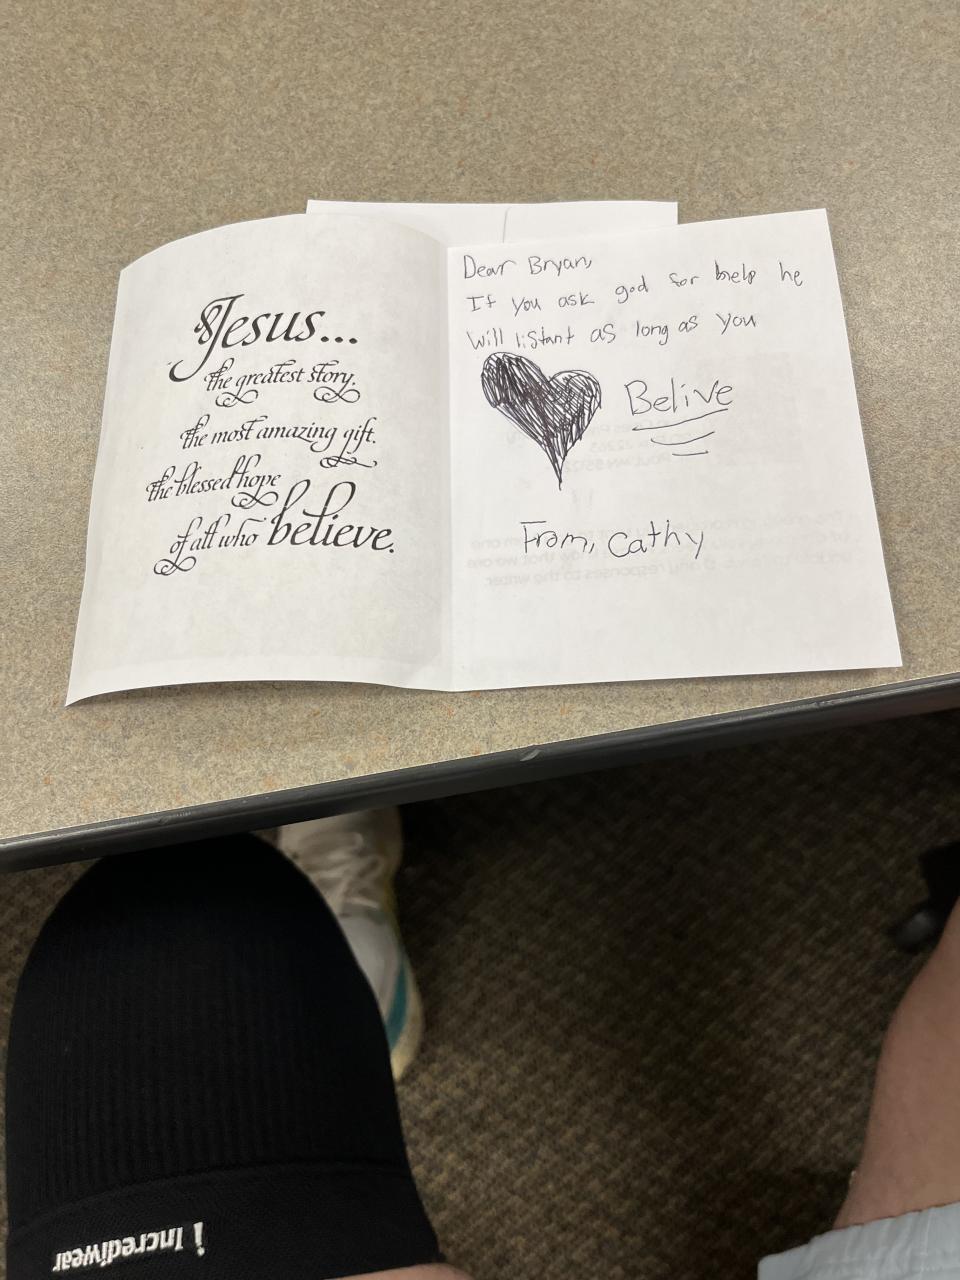 Jesus...
the greatest story.
the most amazing gift.
the blessed hope
of all who believe.
Dear Bryan,
If you ask god for help he
Will listant as long as you
Belive
From, Cathy
i Incrediwear